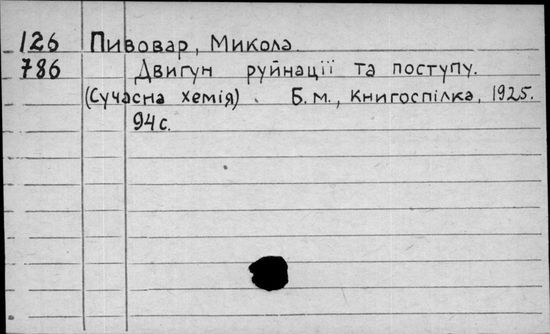 126 Пивовар, Микола.
786 Двигун руйнації та поступу.
(Сучасна хемія). Б.м., Книгоспілка, 1925.
94 с.